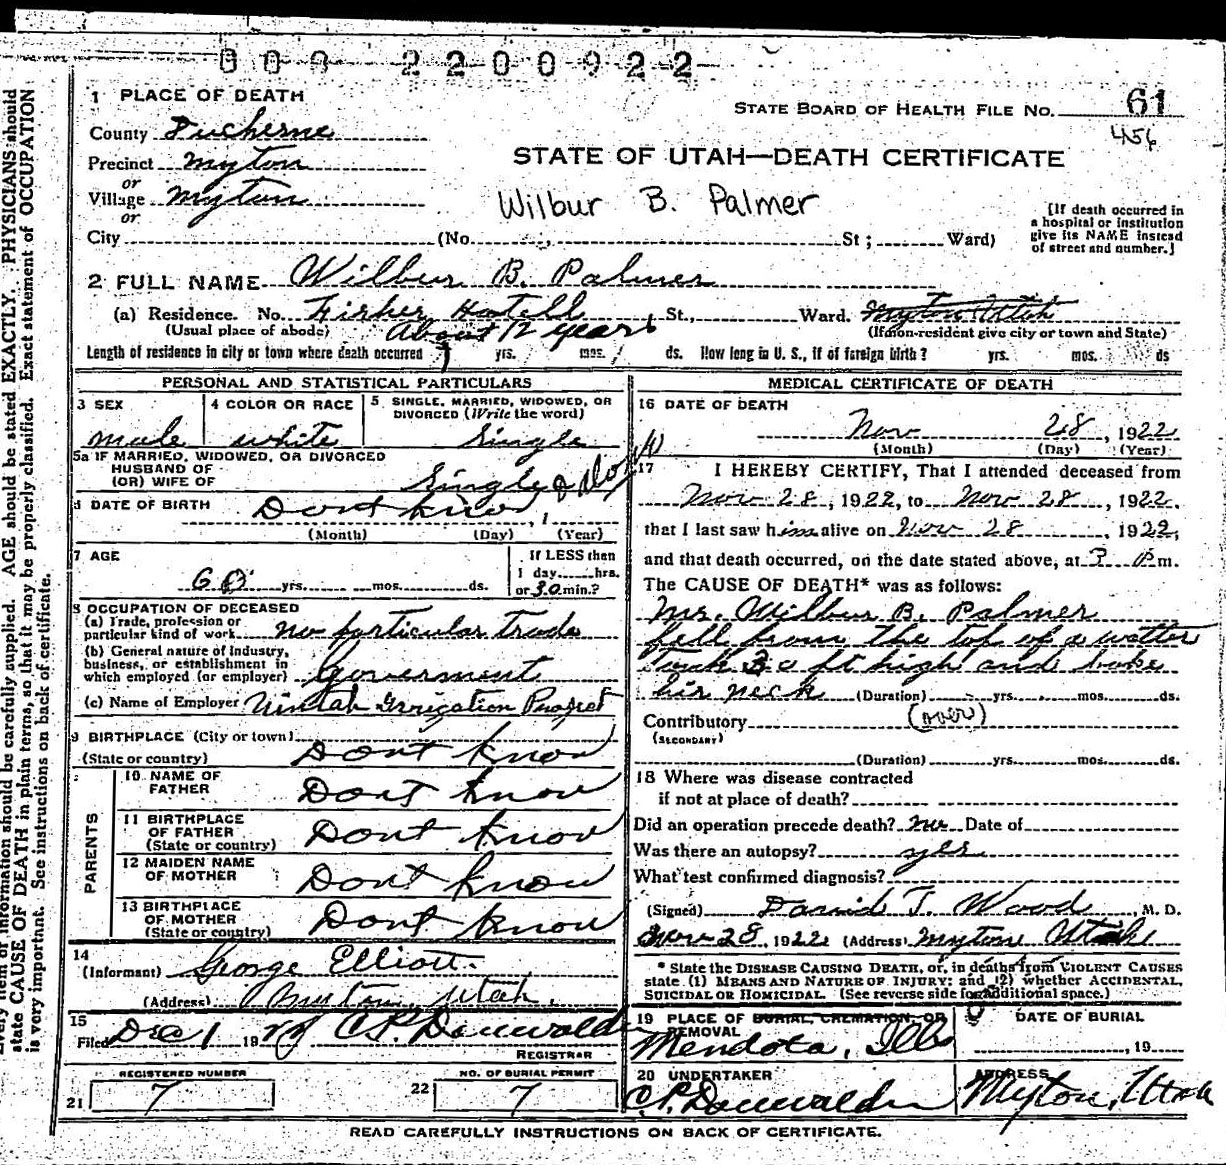 000 2200922
1 PLACE OF DEATH
STATE BOARD OF HEALTH FILE NO. 61
456
County Duchesne
STATE OF UTAH—DEATH CERTIFICATE
Precinct Myton
or
Village Myton
or
Wilbur B. Palmer
[If death occurred in
a hospital or institution
give its NAME instead
of street and number.]
City (No. St; Ward)
2 FULL NAME Wilbur B. Palmer
(a) Residence. No. Fisher Hotell St., Ward. Myton Utah
(Usual place of abode) About 12 years (If non-resident give city or town and State)
Length of residence in city or town where death occurred yrs. mos. ds. How long in U. S., if of foreign birth? yrs. mos. ds
PERSONAL AND STATISTICAL PARTICULARS
3 SEX
male
4 COLOR OR RACE
white
5 SINGLE, MARRIED, WIDOWED, OR
DIVORCED (Write the word)
Single
5a IF MARRIED, WIDOWED, OR DIVORCED
HUSBAND OF
(OR) WIFE OF Single
6 DATE OF BIRTH Dont know, 1
(Month) (Day) (Year)
7 AGE
yrs. mos. ds.
If LESS then
1 day hrs.
or 30 min.?
8 OCCUPATION OF DECEASED
(a) Trade, profession or
particular kind of work no particular Trade
(b) General nature of Industry,
business, or establishment in
which employed (or employer) Goverment
(c) Name of Employer Uintah Irrigation Project
9 BIRTHPLACE (City or town)
(State or country) Dont know
PARENTS
10 NAME OF
FATHER Dont know
11 BIRTHPLACE
OF FATHER
(State or country) Dont know
12 MAIDEN NAME
OF MOTHER Dont know
13 BIRTHPLACE
OF MOTHER
(State or country) Dont know
14
(Informant) George Elliott.
(Address) Myton, Utah.
15
Filed Dec 1 19 C.P. Dannwalder
REGISTRAR
REGISTERED NUMBER
21 7
NO. OF BURIAL PERMIT
22 7
MEDICAL CERTIFICATE OF DEATH
16 DATE OF DEATH
Nov 28, 1922
(Month) (Day) (Year)
17 I HEREBY CERTIFY, That I attended deceased from
Nov 28, 1922, to Nov 28, 1922.
that I last saw him alive on Nov 28, 1922,
and that death occurred, on the date stated above, at 3 Pm.
The CAUSE OF DEATH* was as follows:
Mr. Wilbur B. Palmer
fell from the top of a watter
tank 30 ft high and broke
his neck (Duration) yrs. mos. ds.
Contributory (over)
(SECONDARY)
(Duration) yrs. mos. ds.
18 Where was disease contracted
if not at place of death?
Did an operation precede death? no Date of
Was there an autopsy? yes
What test confirmed diagnosis?
(Signed) David T. Wood M. D.
Nov 28, 1922 (Address) Myton Utah
* State the DISEASE CAUSING DEATH, or, in deaths from VIOLENT CAUSES
state (1) MEANS AND NATURE OF INJURY; and (2) whether ACCIDENTAL,
SUICIDAL OR HOMICIDAL. (See reverse side for additional space.)
19 PLACE OF BURIAL, CREMATION, OR
REMOVAL
Mendota, Ills
DATE OF BURIAL
, 19
20 UNDERTAKER
C.P. Dannwalder
ADDRESS
Myton, Utah
READ CAREFULLY INSTRUCTIONS ON BACK OF CERTIFICATE.
Every item of information should be carefully supplied. AGE should be stated EXACTLY. PHYSICIANS should
state CAUSE OF DEATH in plain terms, so that it may be properly classified. Exact statement of OCCUPATION
is very important. See instructions on back of certificate.